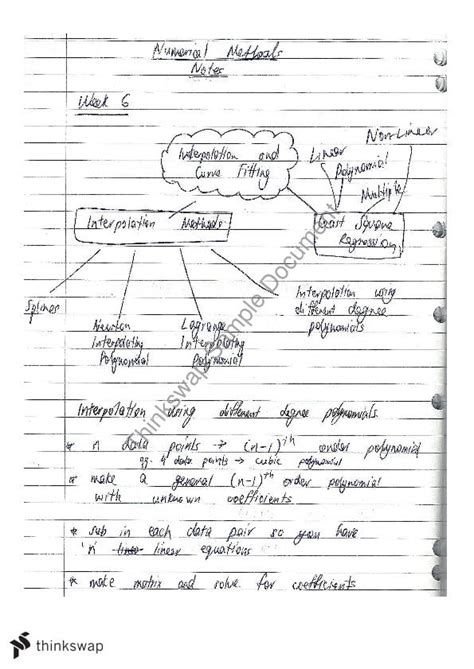 Numerical Methods
Notes
Week 6
Interpolation and
Curve Fitting
Linear
Polynomial
Multiple
Non-Linear
Interpolation Methods
Least Square
Regression
Splines
Newton
Interpolating
Polynomial
Lagrange
Interpolating
Polynomial
Interpolation using
different degree
polynomials
Interpolation using different degree polynomials
* n data points → (n-1)th order polynomial
eg. 4 data points → cubic polynomial
* make a general (n-1)th order polynomial
with unknown coefficients
* sub in each data pair so you have
'n' linear equations
* make matrix and solve for coefficients
Thinkswap Sample Document
thinkswap